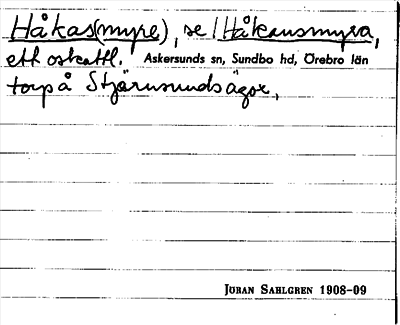 Håkas(myre), se | Håkansmyra,
ett oskattl. Askersunds sn, Sundbo hd, Örebro län
torp å Stjärnsunds ägor,
JÖRAN SAHLGREN 1908-09